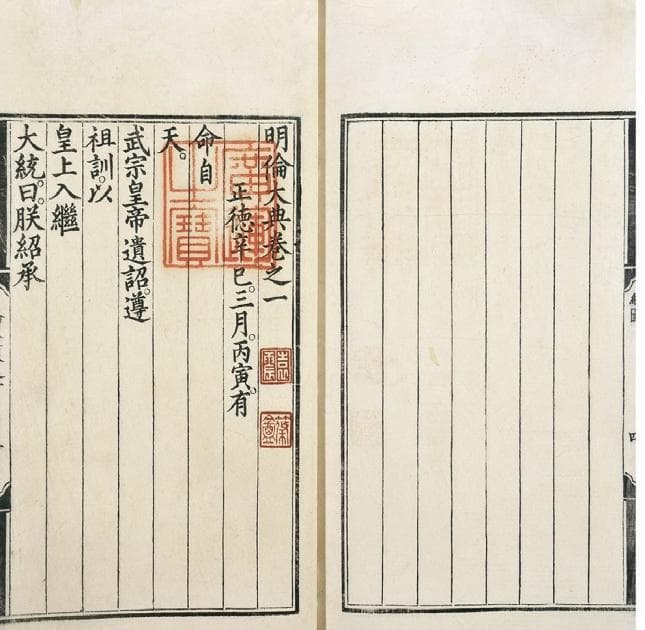 明倫大典卷之一
正德辛巳。三月。丙寅。有
命自
天。
武宗皇帝遺詔。遵
祖訓。以
皇上入繼
大統。曰。朕紹承
廣運之寶
四